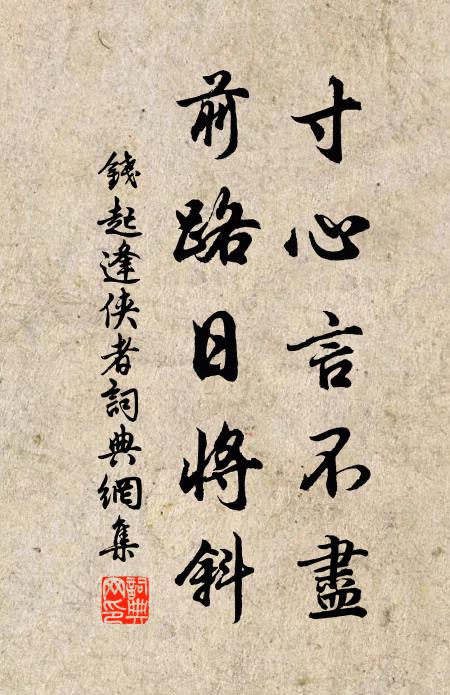 寸心言不盡
前路日將斜
錢起逢俠者詞典網集
詞典網印